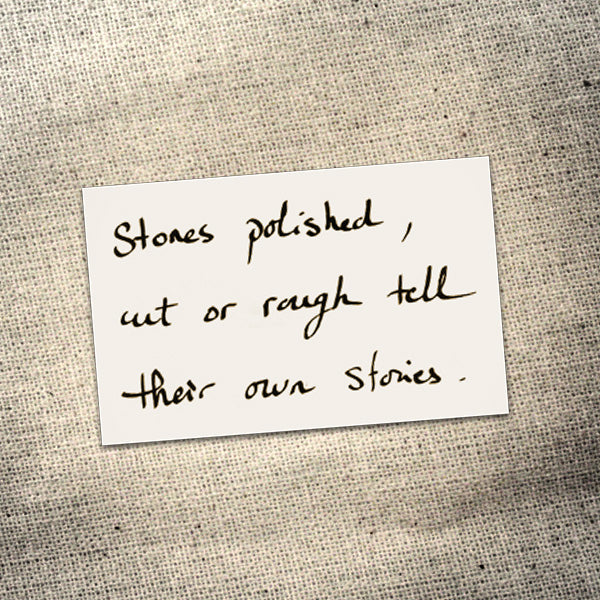 Stones polished,
cut or rough tell
their own stories.